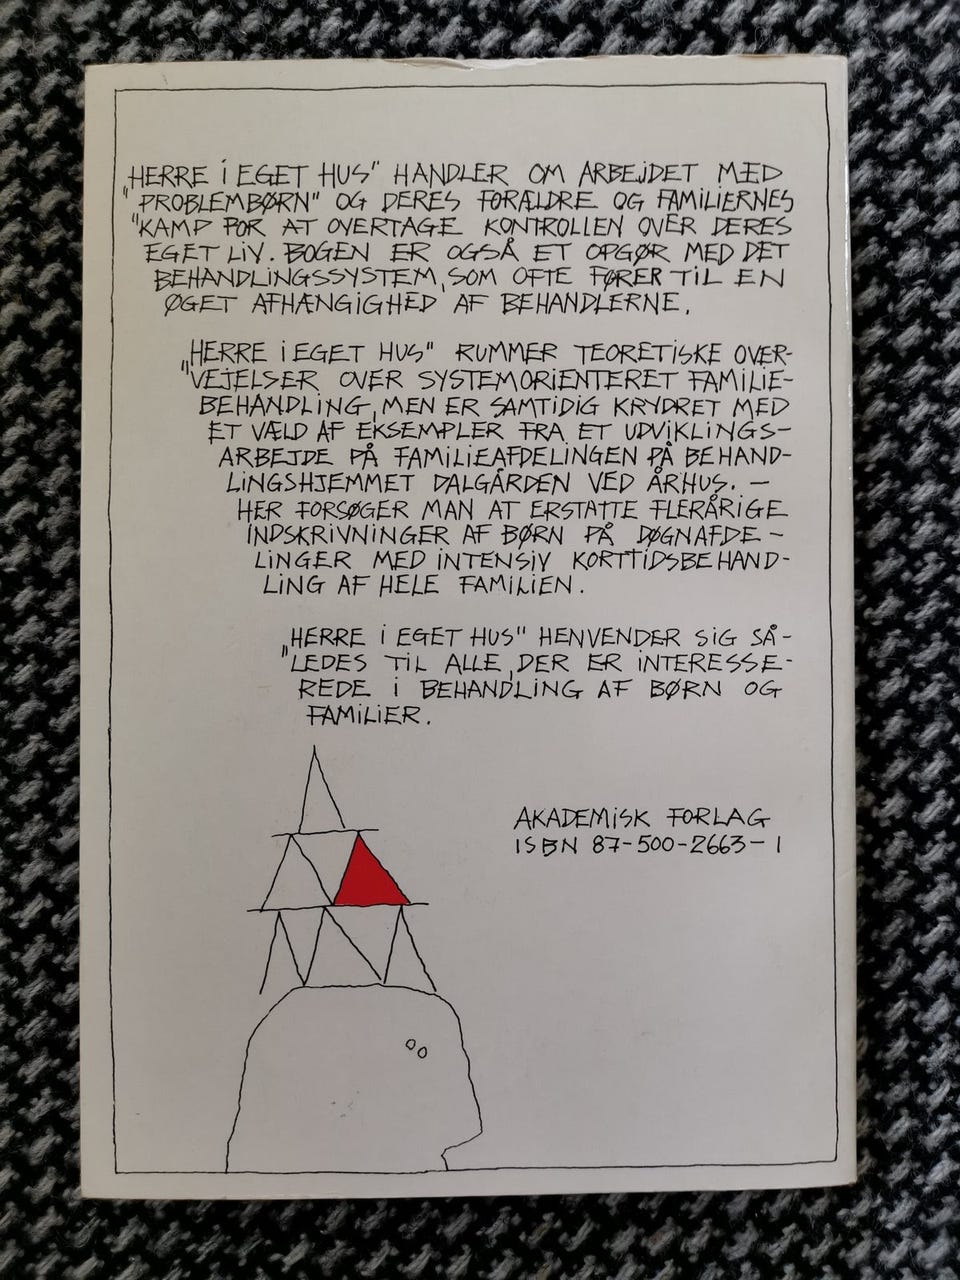 "HERRE I EGET HUS" HANDLER OM ARBEJDET MED
"PROBLEMBØRN" OG DERES FORÆLDRE OG FAMILIERNES
KAMP FOR AT OVERTAGE KONTROLLEN OVER DERES
EGET LIV. BOGEN ER OGSÅ ET OPGØR MED DET
BEHANDLINGSSYSTEM, SOM OFTE FØRER TIL EN
ØGET AFHÆNGIGHED AF BEHANDLERNE.
"HERRE I EGET HUS" RUMMER TEORETISKE OVER-
VEJELSER OVER SYSTEMORIENTERET FAMILIE-
BEHANDLING, MEN ER SAMTIDIG KRYDRET MED
ET VÆLD AF EKSEMPLER FRA ET UDVIKLINGS-
ARBEJDE PÅ FAMILIEAFDELINGEN PÅ BEHAND-
LINGSHJEMMET DALGÅRDEN VED ÅRHUS. —
HER FORSØGER MAN AT ERSTATTE FLERÅRIGE
INDSKRIVNINGER AF BØRN PÅ DØGNAFDE-
LINGER MED INTENSIV KORTTIDSBEHAND-
LING AF HELE FAMILIEN.
"HERRE I EGET HUS" HENVENDER SIG SÅ-
LEDES TIL ALLE, DER ER INTERESSE-
REDE I BEHANDLING AF BØRN OG
FAMILIER.
AKADEMISK FORLAG
ISBN 87-500-2663-1